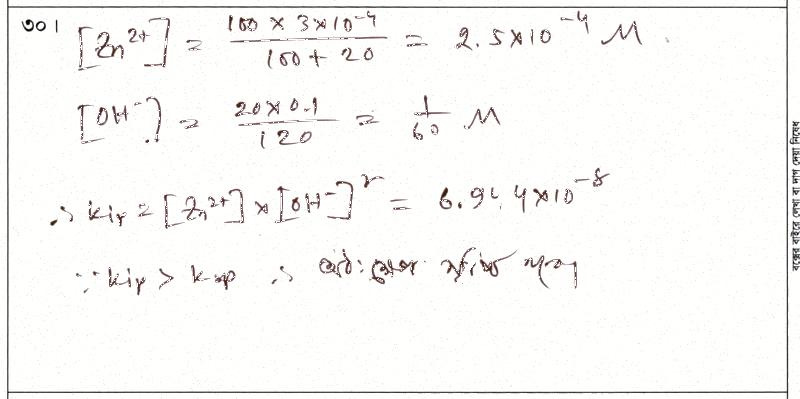 ৩০।
[Zn²⁺] = (100 × 3×10⁻⁴)/(100 + 20) = 2.5×10⁻⁴ M
[OH⁻] = (20×0.1)/120 = 1/60 M
∴ kip = [Zn²⁺] × [OH⁻]² = 6.944×10⁻⁸
∵ kip > ksp ∴ অধঃক্ষেপ
বক্সের বাইরে লেখা বা দাগ দেয়া নিষেধ